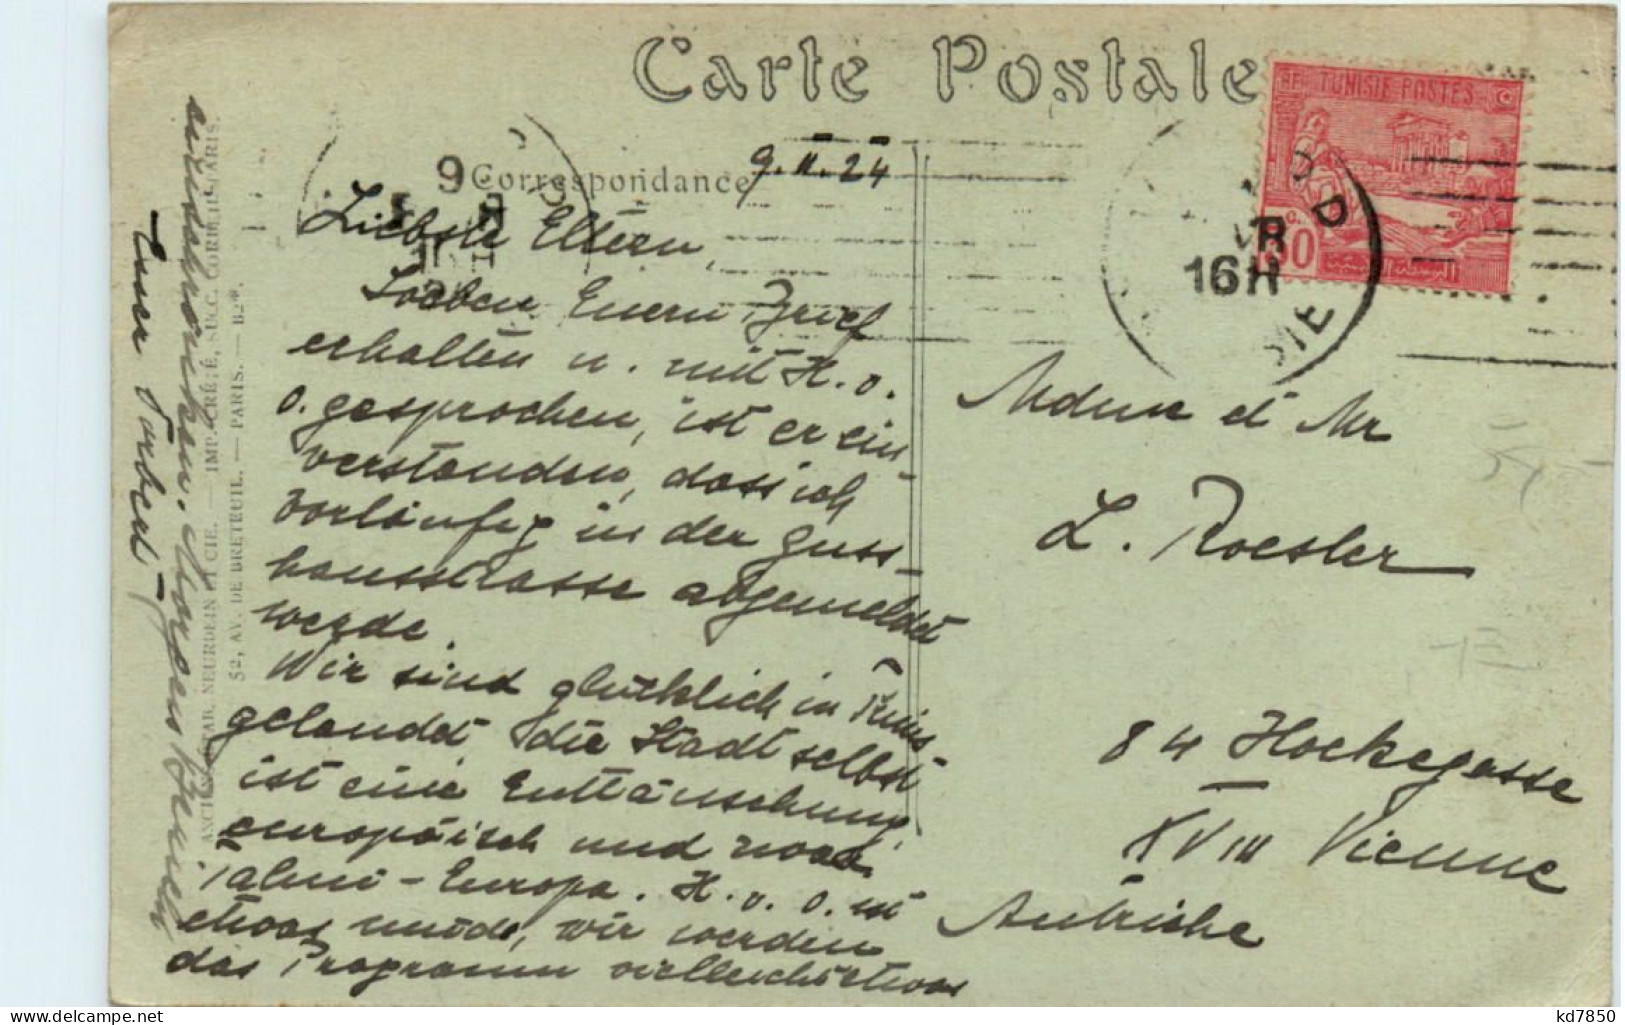 Carte Postale
Correspondance
9.II.24
TUNISIE POSTES
RF
16H
9
Liebste Eltern,
Soeben Euern Brief
erhalten u. mit H. v.
O. gesprochen, ist er ein-
verstanden, dass ich
vorläufig in der Guss-
hausstrasse abgemeldet
werde.
Wir sind glücklich in Tunis
gelandet, die Stadt selbst
ist eine Enttäuschung,
europäisch und noch
- Europa. H. v. O. ist
etwas müde, wir werden
das Programm vielleicht etwas
einschränken. Morgen
Euer
ANCIENS ÉTAB. NEURDEIN ET CIE. — IMP. CRÉTÉ, SUCC. CORBEIL-PARIS.
52, AV. DE BRETEUIL. — PARIS. — B2º.
Mdme et Mr
L. Roesler
84 Hockegasse
XVIII Vienne
Autriche
kd7850